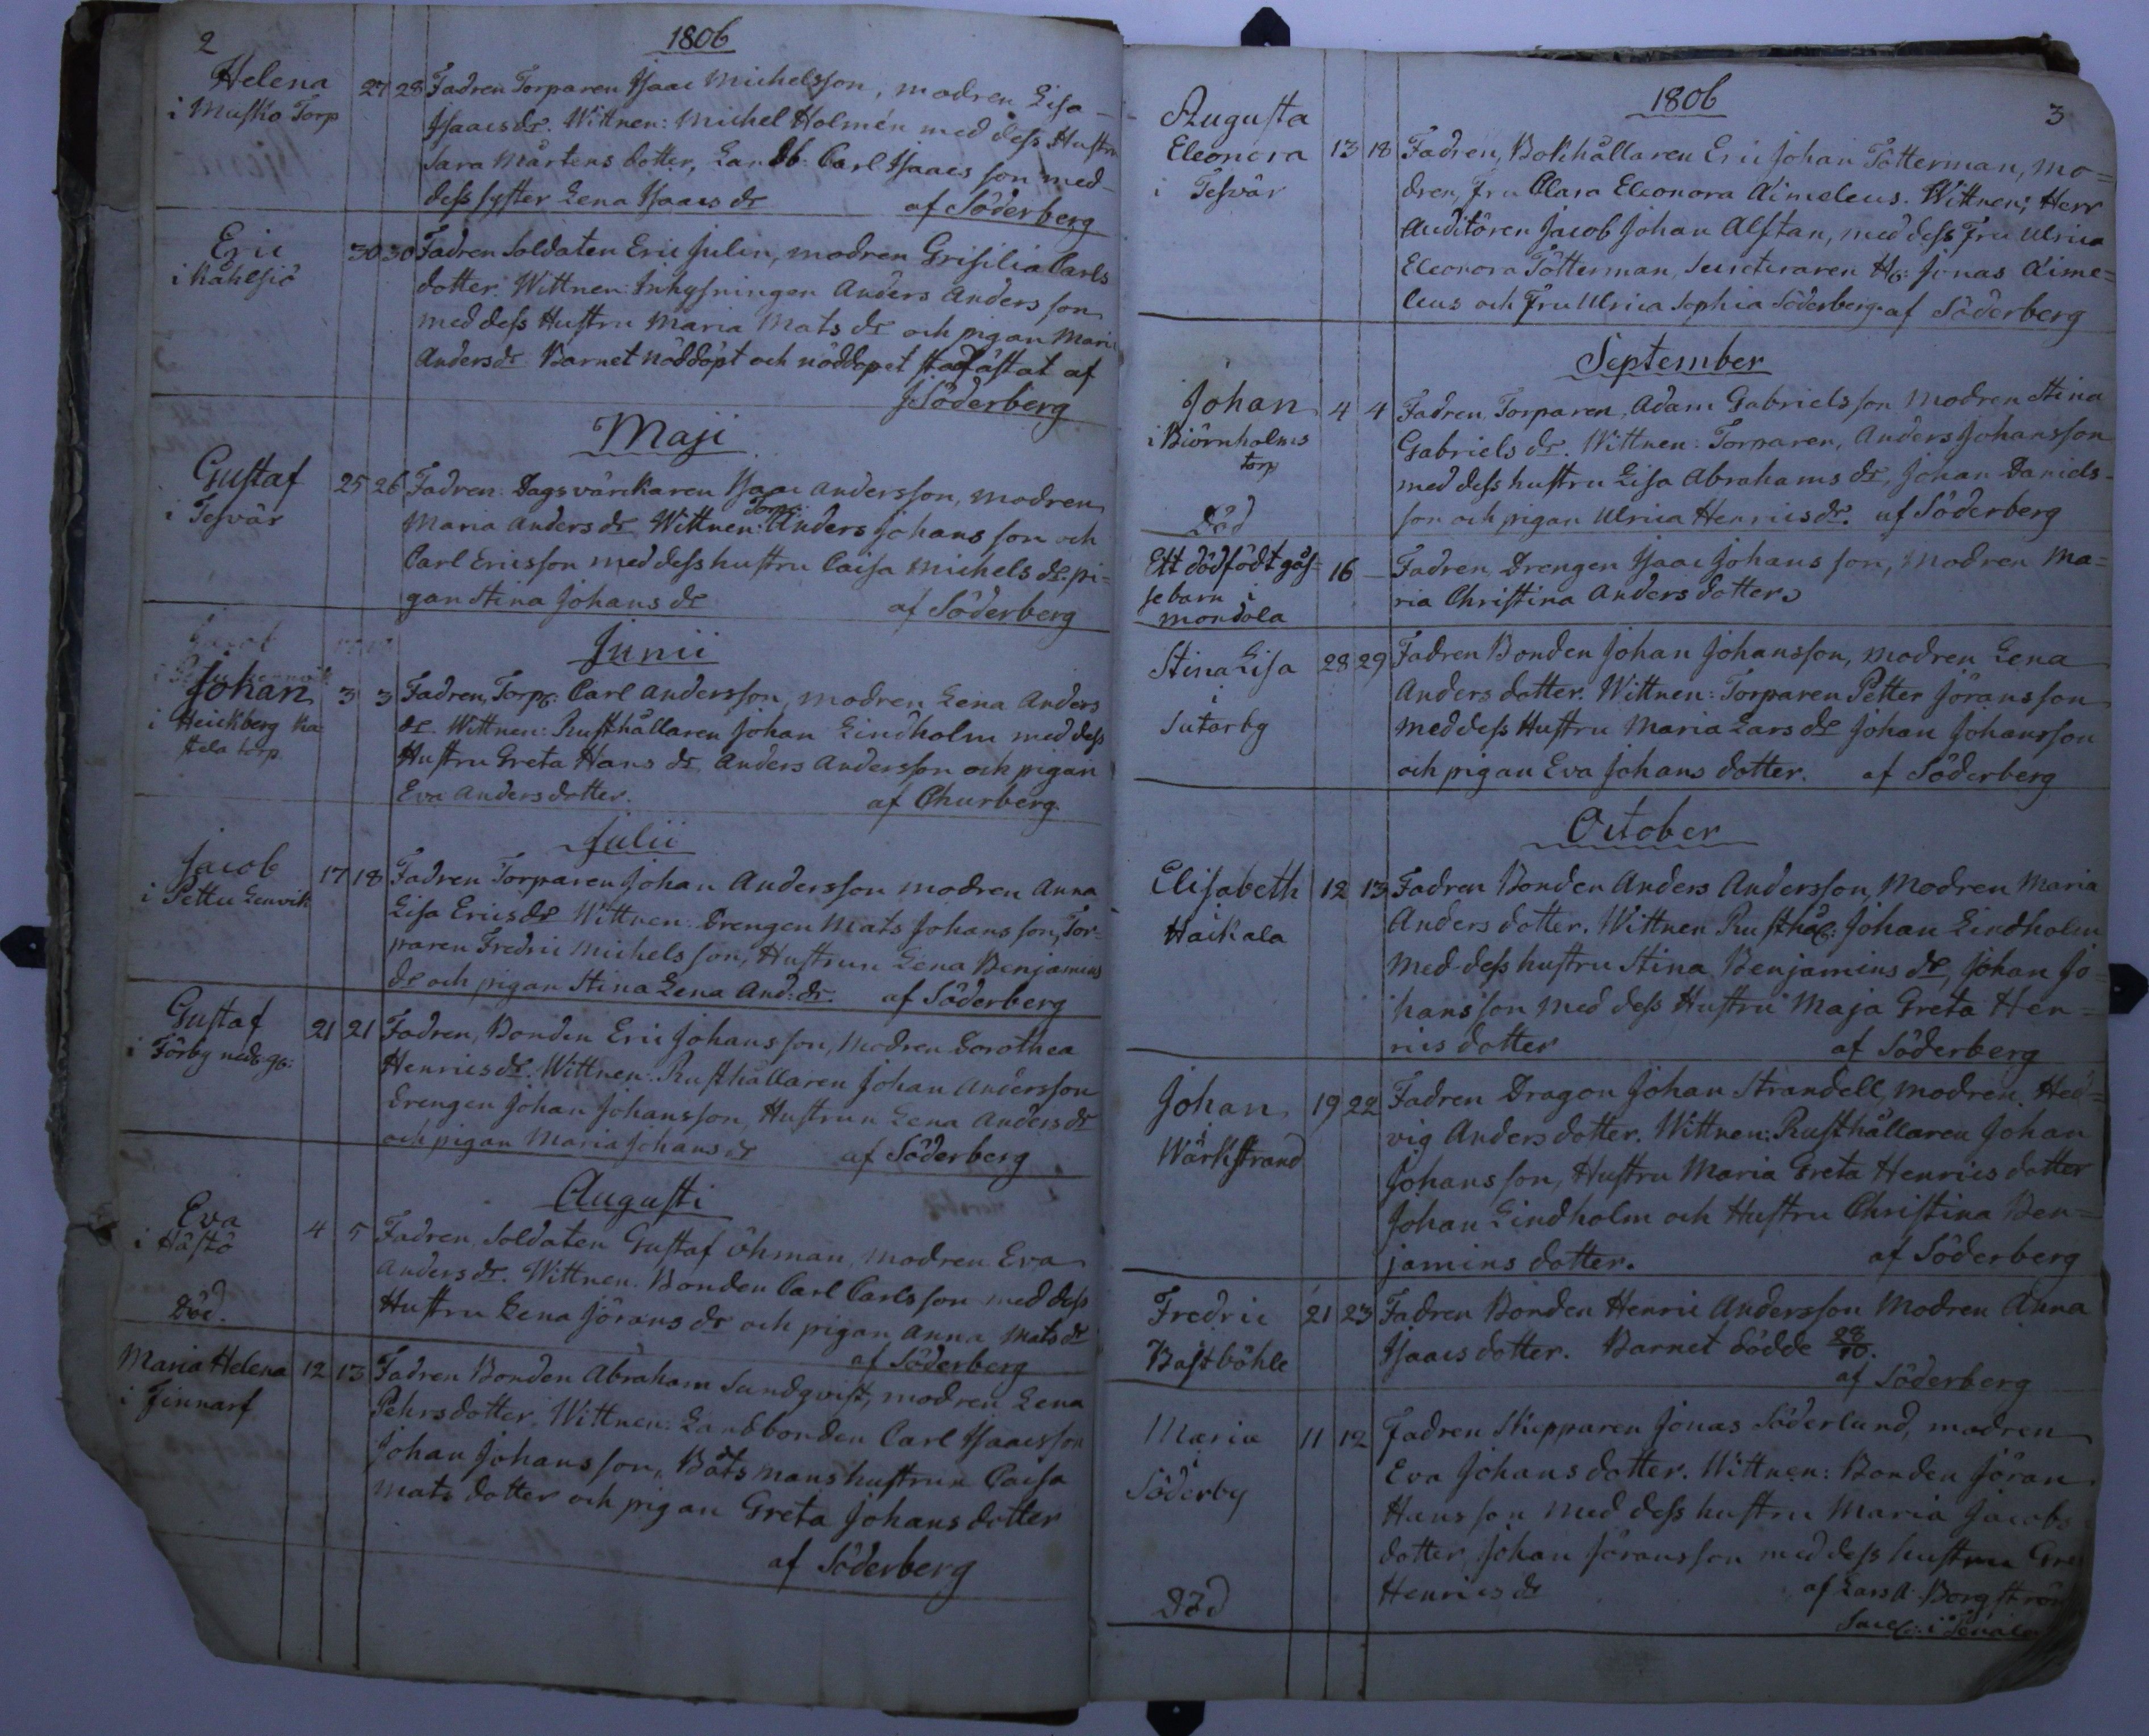 2
1806
Helena
i Musko Torp
27 28 Fadren Torparen Isaac Michelsson, modren Lisa
Isaacs dr. Wittnen: Michel Holmén med dess Hustru
Sara Mårtens dotter, Landb: Carl Isaacs son med
dess syster Lena Isaacs dr
af Söderberg
Eric
i Kåhlsjö
30 30 Fadren Soldaten Eric Julin, modren Grisilia Carls
dotter. Wittnen: Inhysningen Anders Anders son
med dess Hustru Maria Mats dr och pigan Mari
Anders dr Barnet nöddöpt och nöddopet stadfästat af
J Söderberg
Maji
Gustaf
i Tesvär
25 26 Fadren: Dagsvärckaren Isaac Andersson, modren
Maria Anders dr. Wittnen: Torp: Anders Johans son och
Carl Ericsson med dess hustru Caisa Michels dr. pi=
gan Stina Johans dr
af Söderberg
Junii
Jacob
Johan
i Heickberg Ka
stela torp.
3 3 Fadren, Torp: Carl Andersson, modren Lena Anders
dr. Wittnen: Rusthållaren Johan Lindholm med dess
Hustru Greta Hans dr. Anders Andersson och pigan
Eva Anders dotter.
af Churberg.
Julii
Jacob
i Pettu Lenvik
17 18 Fadren Torparen Johan Andersson modren Anna
Lisa Erics dr Wittnen: Drengen Mats Johans son, Tor=
paren Fredric Michels son, Hustrun Lena Benjamins
dr och pigan Stina Lena And: dr.
af Söderberg
Gustaf
i Förby nedg:
21 21 Fadren, Bonden Eric Johans son, Modren Dorothea
Henrics dr. Wittnen: Rusthållaren Johan Andersson
Drengen Johan Johansson, Hustrun Lena Anders dr
och pigan Maria Johans dr
af Söderberg
Augusti
Eva
i Håstö
Död.
4 5 Fadren, Soldaten Gustaf Öhman, modren Eva
Anders dr. Wittnen. Bonden Carl Carls son med dess
Hustru Lena Jörans dr och pigan Anna Mats dr
af Söderberg
Maria Helena
i Finnarf
12 13 Fadren Bonden Abraham Sundqvist, modren Lena
Pehrs dotter. Wittnen: Landbonden Carl Isaacsson
Johan Johans son, Båtsmans hustrun Caisa
Mats dotter och pigan Greta Johans dotter
af Söderberg
1806
3
Augusta
Eleonora
i Tesvär
13 18 Fadren, Bokhållaren Eric Johan Tötterman, mo=
dren, Fru Clara Eleonora Aimeleus. Wittnen; Herr
Auditören Jacob Johan Alftan, med dess Fru Ulrica
Eleonora Tötterman, Secreteraren Hr: Jonas Aime=
leus och Fru Ulrica Sophia Söderberg. af Söderberg
September
Johan
i Biörnholms
torp
Död
4 4 Fadren, Torparen, Adam Gabriels son Modren Stina
Gabriels dr. Wittnen: Torparen, Anders Johansson
med dess hustru Lisa Abrahams dr, Johan Daniels-
son och pigan Ulrica Henrics dr. af Söderberg
Ett dödfödt gås=
sebarn i
Mondola
16 — Fadren, Drengen Isaac Johans son, Modren Ma=
ria Christina Anders dotter
Stina Lisa
i
Sutarby
28 29 Fadren Bonden Johan Johansson, modren Lena
Anders dotter. Wittnen: Torparen Petter Jöransson
med dess Hustru Maria Lars dr Johan Johansson
och pigan Eva Johans dotter.
af Söderberg
October
Elisabeth
i
Haikala
12 13 Fadren Bonden Anders Andersson, Modren Maria
Anders dotter. Wittnen Rusthål: Johan Lindholm
med dess hustru Stina Benjamins dr, Johan Jo=
hans son med dess Hustru Maja Greta Hen=
rics dotter
af Söderberg
Johan
i
Wårkstrand
19 22 Fadren Dragon Johan Strandell, modren Hed=
vig Anders dotter. Wittnen: Rusthållaren Johan
Johans son, Hustru Maria Greta Henrics dotter
Johan Lindholm och Hustru Christina Ben=
jamins dotter.
af Söderberg
Fredric
i
Bastböhle
21 23 Fadren Bonden Henric Andersson Modren Anna
Isaacs dotter. Barnet dödde 28/10.
af Söderberg
Maria
i
Söderby
Död
11 12 Fadren Skepparen Jonas Söderlund, modren
Eva Johans dotter. Wittnen: Bonden Jöran
Hans son med dess hustru Maria Jacobs
dotter, Johan Jörans son med dess hustru Gre
Henrics dr
af Lars A. Borgström